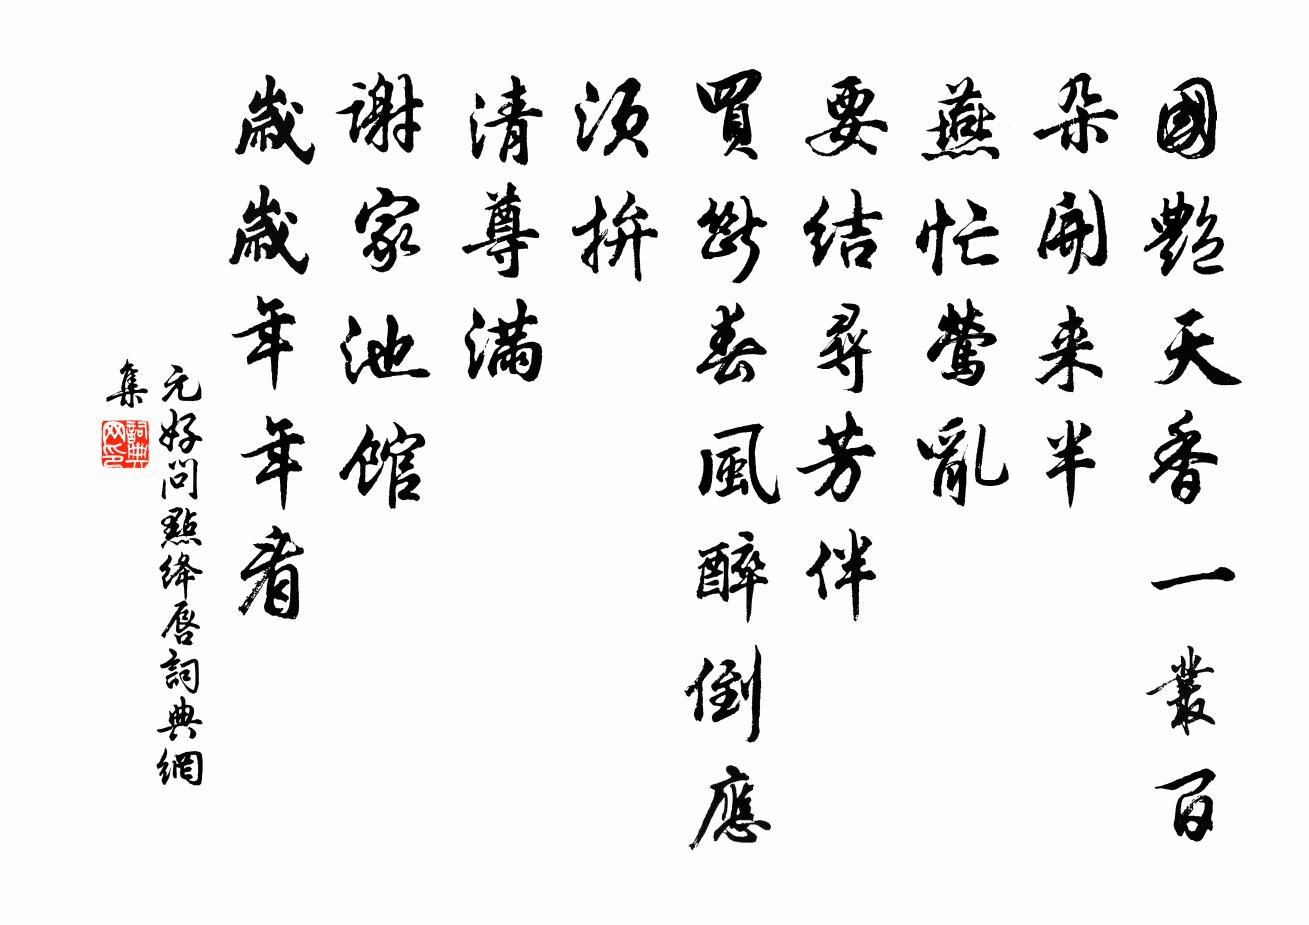 國艷天香一叢百
朵開来半
燕忙鶯亂
要結尋芳伴
買斷春風醉倒應
須拚
清尊滿
謝家池館
歲歲年年看
元好問點絳唇詞典網
集
詞典網印